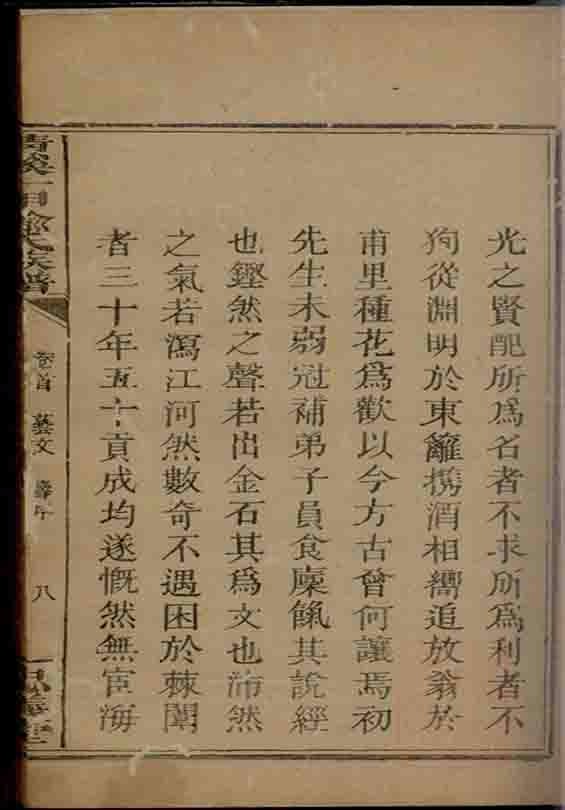 光之賢配所爲名者不求所爲利者不
狥從淵明於東籬携酒相嚮追放翁於
甫里種花爲歡以今方古曾何讓焉初
先生未弱冠補弟子員食廩餼其說經
也鏗然之聲若出金石其爲文也沛然
之氣若瀉江河然數奇不遇困於棘闈
者三十年五十貢成均遂慨然無宦海
氏族譜
卷首 藝文 壽序 八